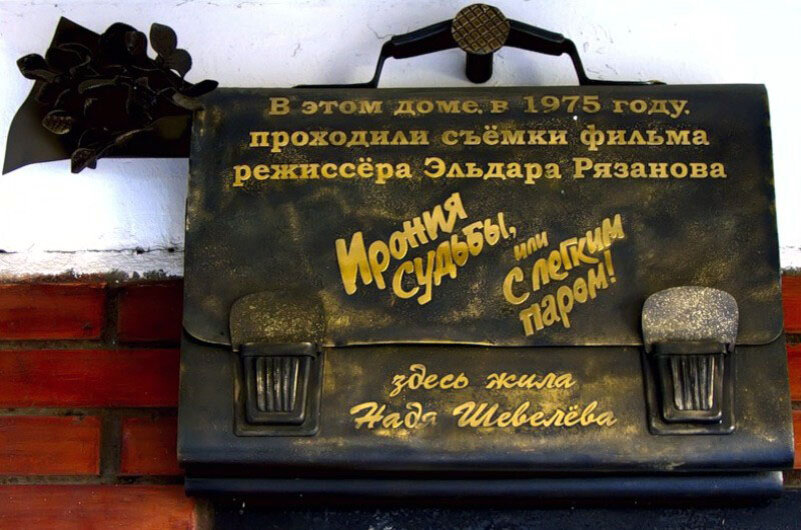 В этом доме, в 1975 году,
проходили съёмки фильма
режиссёра Эльдара Рязанова
Ирония
судьбы,
или
С легким
паром!
здесь жила
Надя Шевелёва